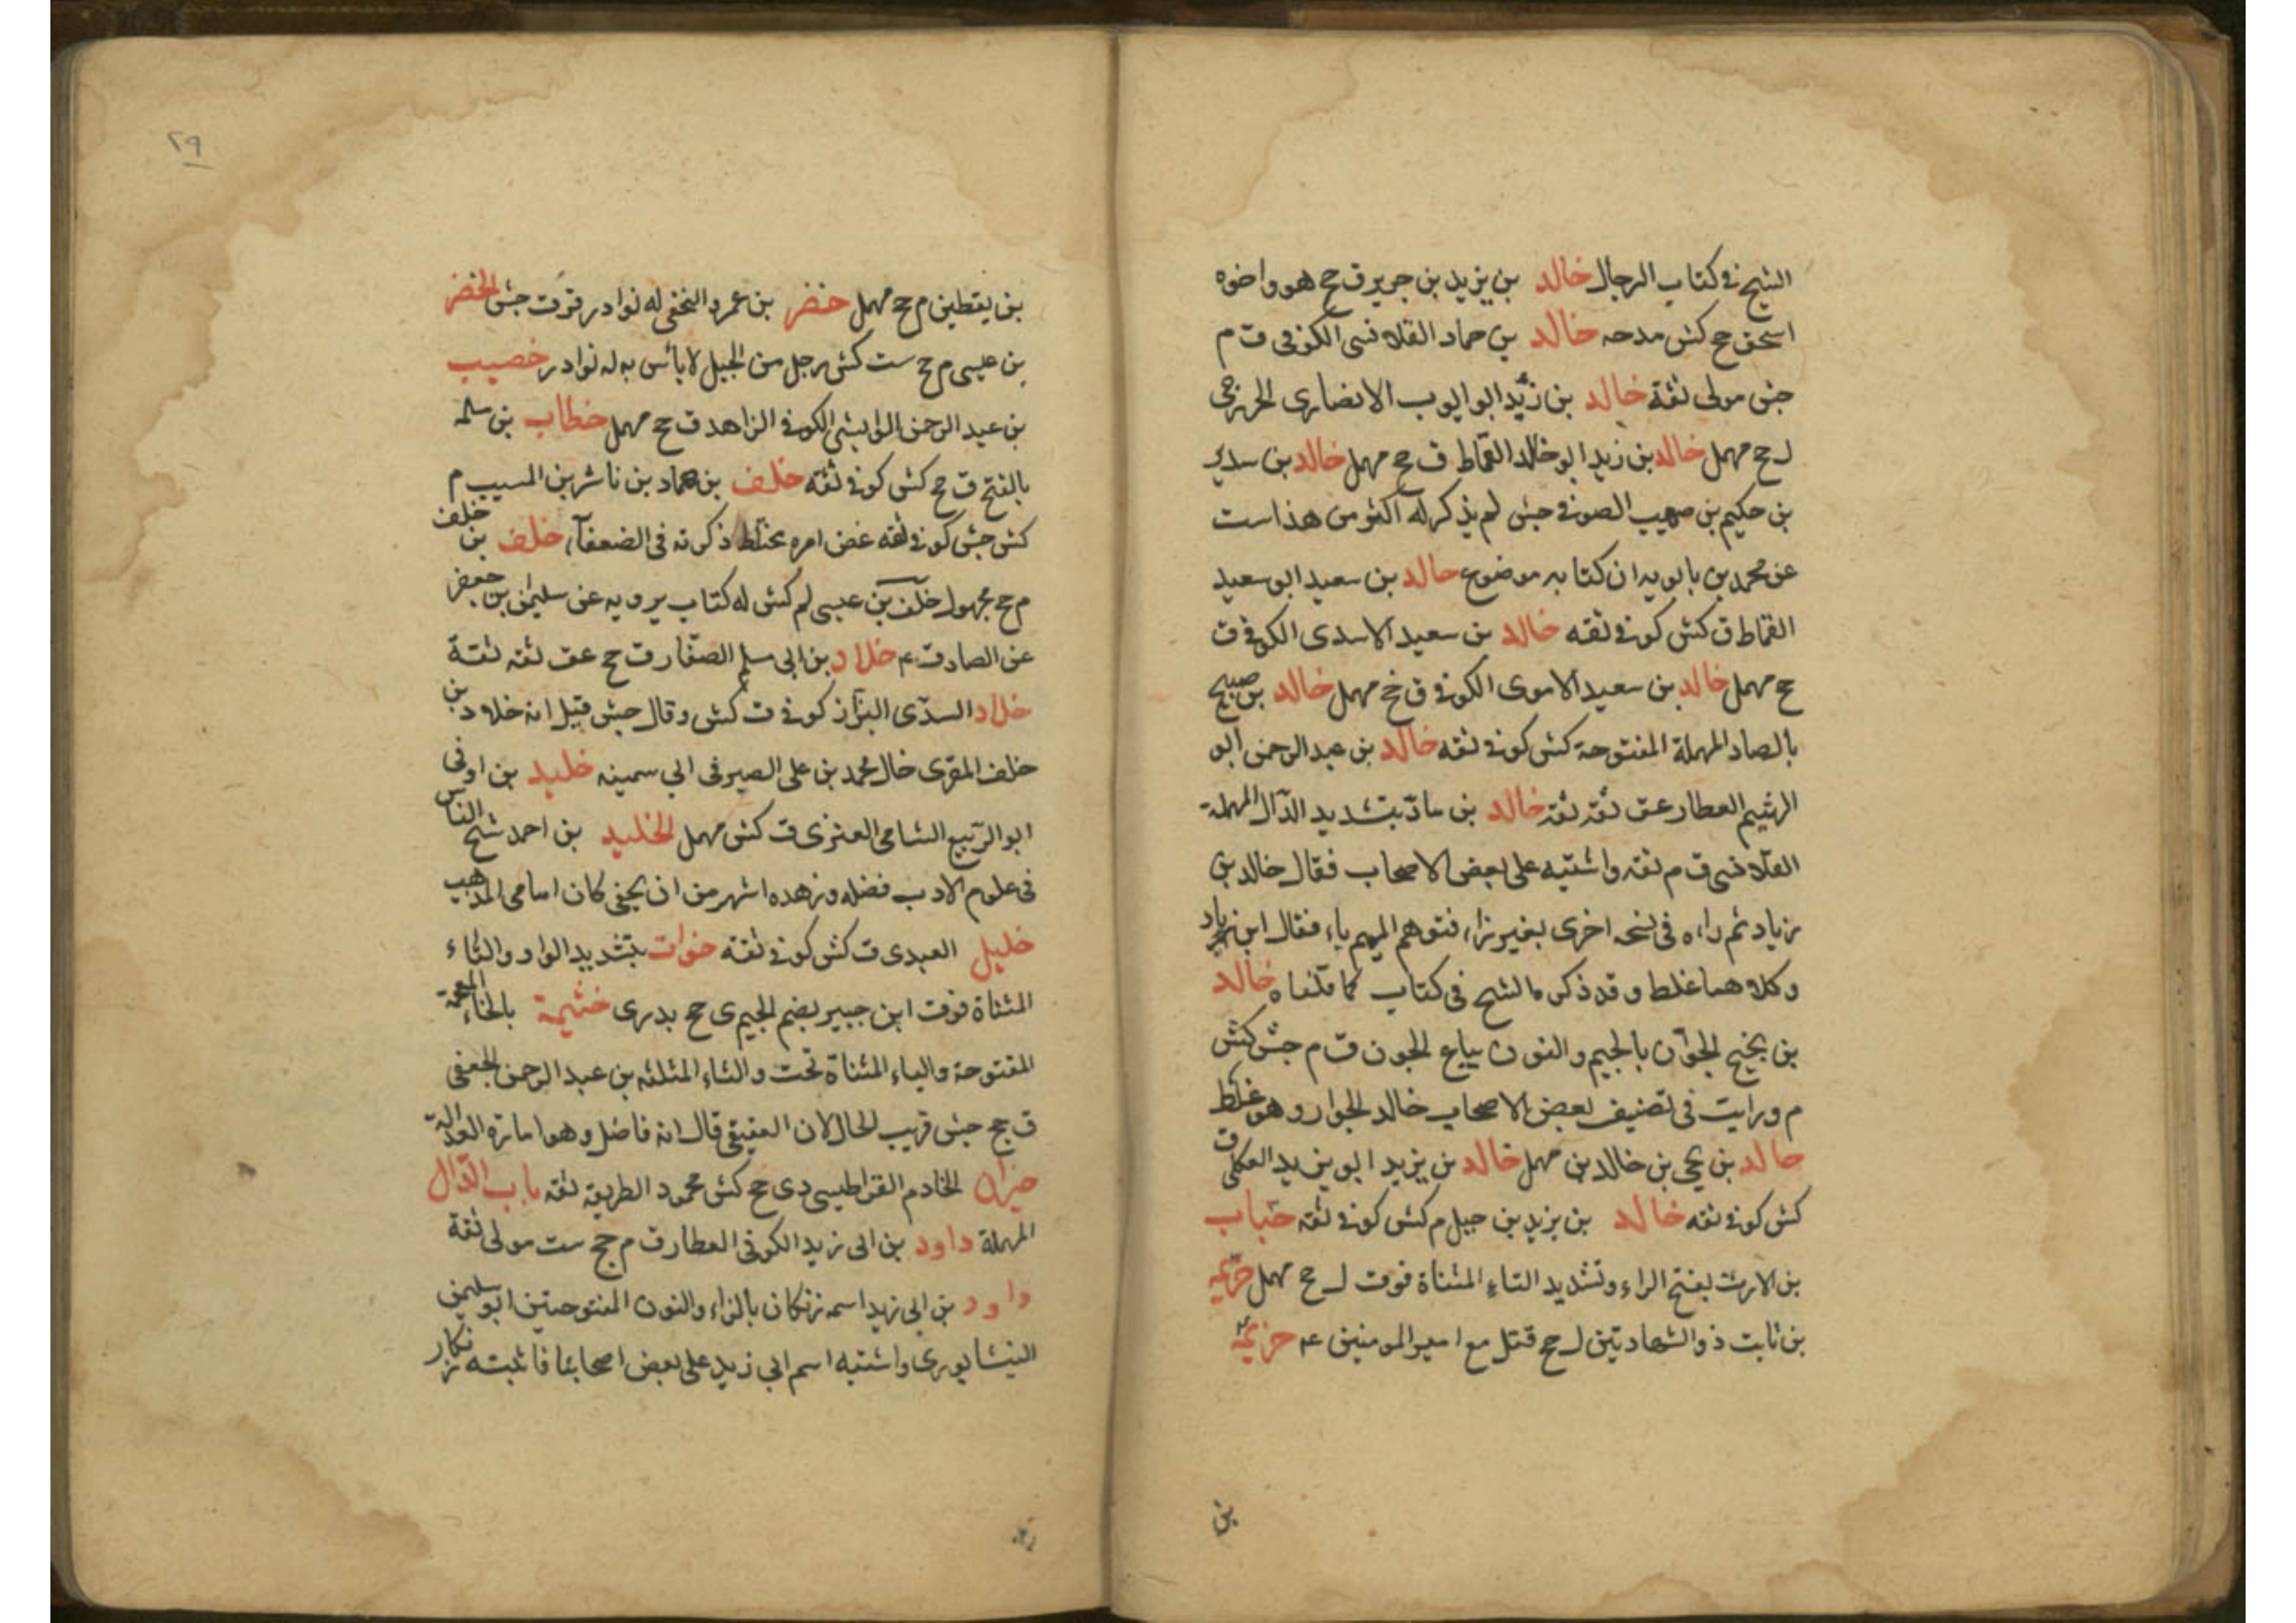 الشيخ في كتاب الرجال خالد بن يزيد بن جرير ق جح هو واخوه
اسحق جح كش مدحه خالد بن حماد القلانسى الكوفى ق م
جش مولى ثقة خالد بن زيد ابو ايوب الانصارى الخزرجى
ل جح مهمل خالد بن زيد ابو خالد القماط ق جح مهمل خالد بن سدير
بن حكيم بن صهيب الصوفى جش لم يذكر له اكثر من هذا ست
عن محمد بن بابويه ان كتابه موضوع خالد بن سعيد ابو سعيد
القماط ق كش كوفى ثقه خالد بن سعيد الاسدى الكوفى ق
جح مهمل خالد بن سعيد الاموى الكوفى ق جح مهمل خالد بن صبيح
بالصاد المهملة المفتوحة كش كوفى ثقه خالد بن عبد الرحمن ابو
الهثيم العطار عق ثقه ثقه خالد بن مادّ بتشديد الدّال المهملة
القلانسى ق م ثقه واشتبه على بعض الاصحاب فقال خالد بن
زياد ثم راه فى نسخه اخرى بغير زاء فتوهم الميم باء فقال ابن باد
وكلاهما غلط وقد ذكره الشيخ فى كتاب كما قلناه خالد
بن نجيح الجوّان بالجيم والنون بياع الجون ق م جش كش
م ورايت فى تصنيف بعض الاصحاب خالد الجوار وهو غلط
خالد بن يحيى بن خالد بن مهمل خالد بن يزيد ابو يزيد العكلى ق
كش كوفى ثقه خالد بن يزيد بن جبل م كش كوفى ثقه خباب
بن الارت بفتح الراء وتشديد التاء المثناة فوق ل جح مهمل خزيمه
بن ثابت ذو الشهادتين ل جح قتل مع امير المومنين ع م خزيمه
بن
٢٩
بن يقطين م جح مهمل خضر بن عمرو النخفى له نوادر قرقت جش الخضر
بن عيسى م جح ست كش رجل من الجبل لا باس به له نوادر خصيب
بن عبد الرحمن الوابشى الكوفى الزاهد ق جح مهمل خطاب بن سلمه
بالفتح ق جح كش كوفى ثقه خلف بن حماد بن ناشر بن المسيب م
كش جش كوفى ثقه غض امره مختلط ذكرته فى الضعفآء خلف بن خلف
م جح مجهول خلف بن عيسى لم كش له كتاب يرويه عن سليمن بن جعفر
عن الصادق ع م خلاد بن ابى مسلم الصفار ق جح عق ثقه ثقة
خلاد السدّى البزاز كوفى ق كش وقال جش قيل انه خلاد بن
خلف المقرى خال محمد بن على الصيرفى ابي سمينه خليد بن اوفى
ابو الربيع الشامى العنزى ق كش مهمل الخليد بن احمد شيخ الناس
فى علوم الادب فضله وزهده اشهر من ان يخفى كان امامى المذهب
خليل العبدى ق كش كوفى ثقه خوات بتشديد الواو والتاء
المثناة فوق ابن جبير بضم الجيم ى جح بدرى خثيمة بالخاء المعجمة
المفتوحة والياء المثناة تحت والثاء المثلثه بن عبد الرحمن الجعفى
ق جح جش قريب الحال لان العقيقى قال انه فاضل وهو امارة العدالة
خيران الخادم القراطيسى دى جح كش محمود الطريقه ثقه باب الدّال
المهملة داود بن ابى زيد الكوفى العطار ق م جح ست مولى ثقة
داود بن ابى زيد اسمه زنكان بالزاء والنون المفتوحتين ابو سليمن
النيشابورى واشتبه اسم ابي زيد على بعض اصحابنا فاثبته زنكار